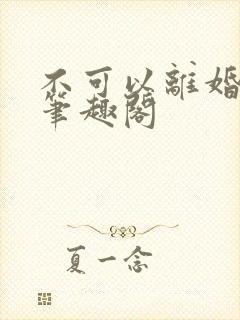 不可以離婚
筆趣閣
夏一念